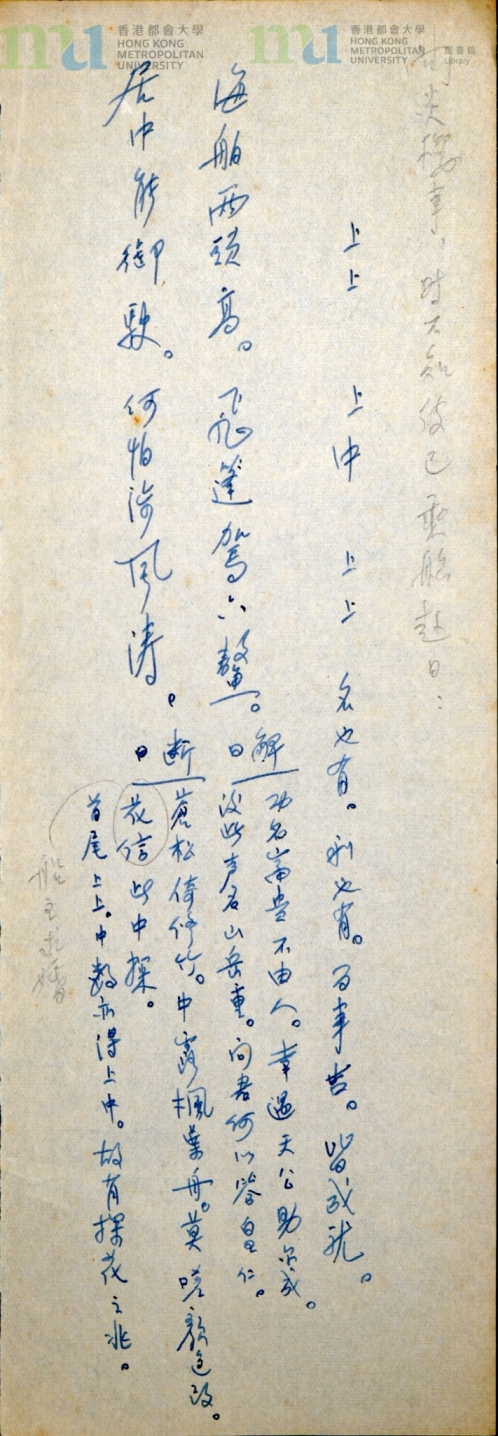 香港都會大學
HONG KONG
METROPOLITAN
UNIVERSITY
香港都會大學
HONG KONG
METROPOLITAN
UNIVERSITY
圖書館
Library
事、時
已乘船赴日：
上上　上中　上上　名也有。利也有。百事吉。皆成就。
海舶兩頭高。飛篷駕六鼇。
解曰
功名富貴不由人。幸遇天公助爾成。
沒些声名山岳重。向君何以答皇仁。
居中能御駛。何怕濤風濤。
断曰
蒼松倚修竹。中露楓葉丹。莫嗟顏色改。
花信此中探。
首尾上上。中數亦得上中。故有探花之兆。